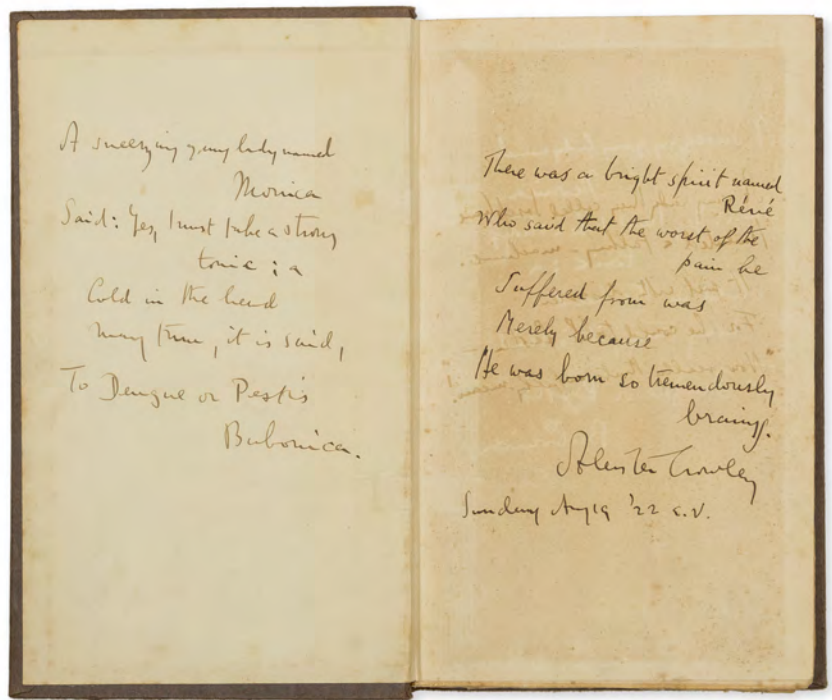 A sneezing young lady named
Monica
Said: Yes, I must take a strong
tonic; a
Cold in the head
may turn, it is said,
To Dengue or Pestis
Bubonica.
There was a bright spirit named
Réné
Who said that the worst of the
pain he
Suffered from was
Merely because
He was born so tremendously
brainy.
Aleister Crowley
Sunday '22 e.v.